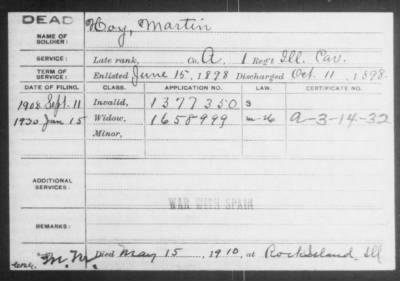 DEAD
NAME OF SOLDIER: Hoy, Martin
SERVICE: Late rank, Co. A, 1 Regt Ill. Cav.
TERM OF SERVICE: Enlisted June 15, 1898 Discharged Oct. 11, 1898.
DATE OF FILING. CLASS. APPLICATION NO. LAW. CERTIFICATE NO.
1908 Sept. 11 Invalid, 1377350
1930 Jan 15 Widow, 1658999 A-3-14-32
Minor,
ADDITIONAL SERVICES:
WAR WITH SPAIN
REMARKS:
M.M. Died May 15, 1910, at Rock Island, Ill